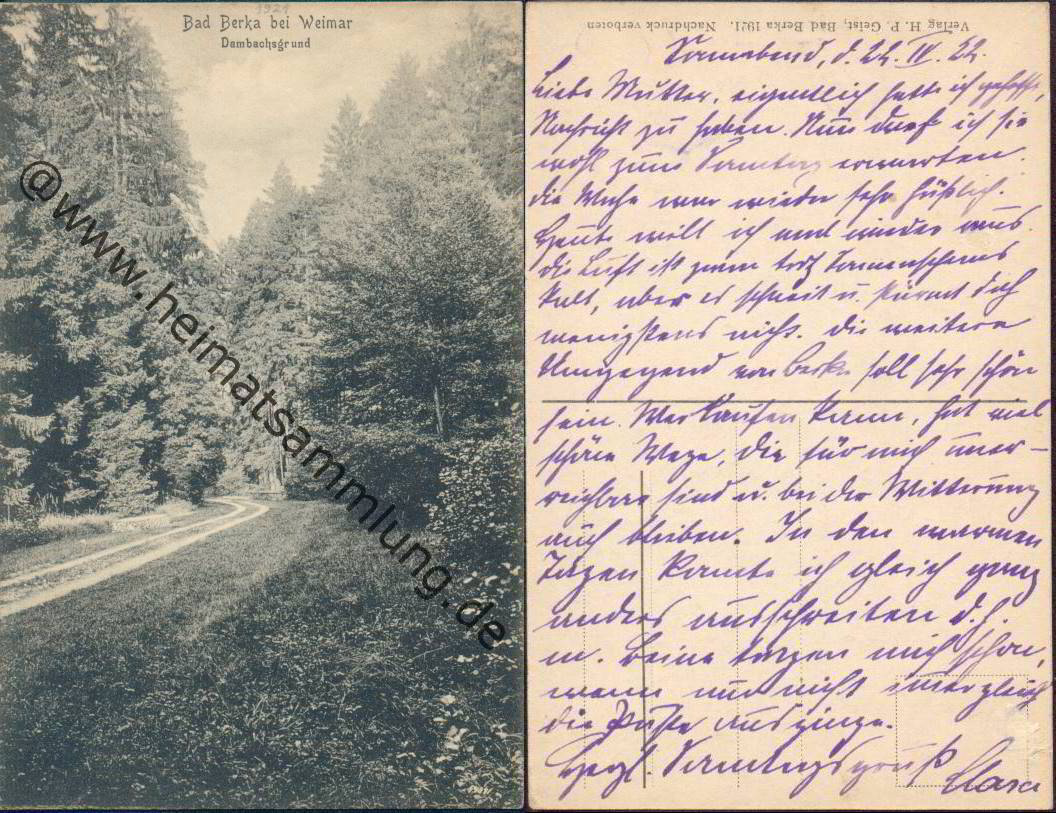 1921
Bad Berka bei Weimar
Dambachsgrund
@www.heimatsammlung.de
Verlag H. P. Geist, Bad Berka 1921. Nachdruck verboten
Sonnabend, d. 22. IV. 22.
Liebe Mutter, eigentlich hatte ich gehofft,
Nachricht zu haben. Nun darf ich sie
wohl zum Sonntag erwarten.
Die Woche war wieder sehr häßlich.
Heute will ich mal wieder aus.
Die Luft ist zwar trotz Sonnenscheins
kalt, aber es schneit u. stürmt doch
wenigstens nicht. Die weitere
Umgegend von Berka soll sehr schön
sein. Wer laufen kann, hat viel
schöne Wege, die für mich uner-
reichbar sind u. bei der Witterung
auch bleiben. In den warmen
Tagen konnte ich gleich ganz
anders ausschreiten d. h.
m. Beine tragen mich schon,
wenn nur nicht immer gleich
die Puste ausginge.
Herzl. Sonntagsgruß
Clara